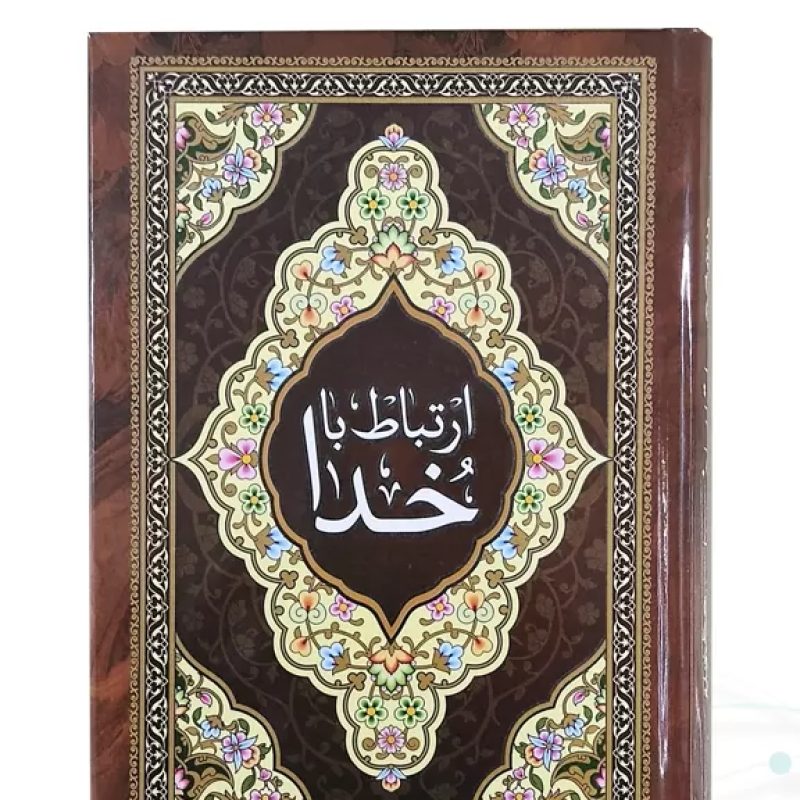 ارتباط با
خُدا